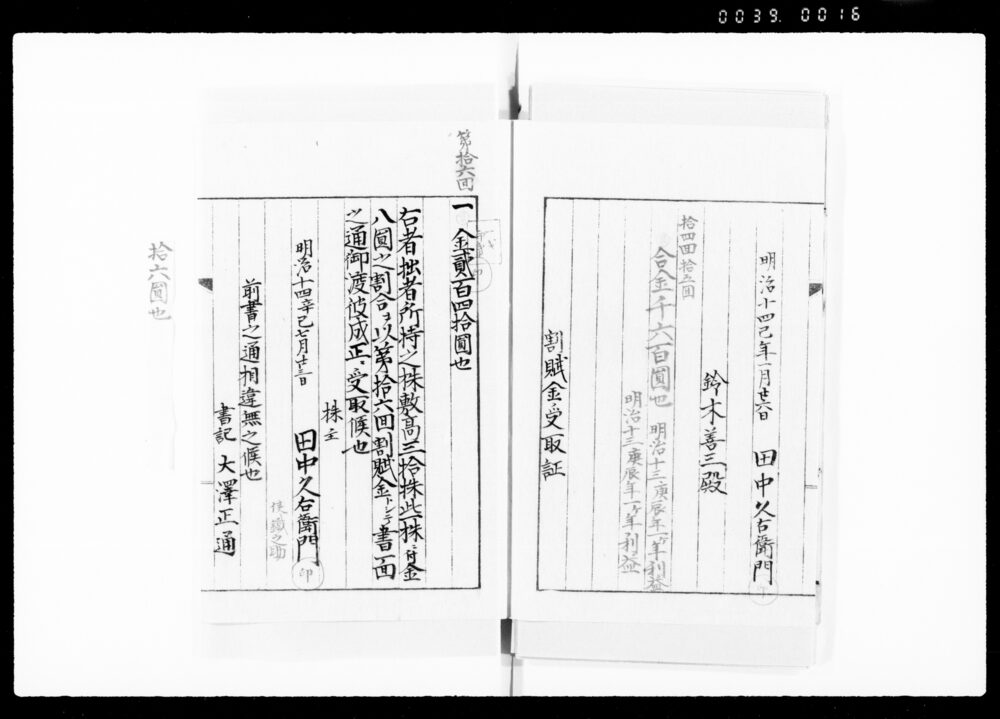 0039. 0016
明治十四己年一月廿六日 田中久右衛門
鈴木善三殿
拾四回拾五回
合金千六百圓也 明治十三庚辰年一ヶ年利益
明治十三庚辰年一ヶ年利益
割賦金受取証
第拾六回
一金貳百四拾圓也
印
右者拙者所持之株敷高三拾株此一株ニ付金
八圓之割合ヲ以第拾六回割賦金トシテ書面
之通御渡被成正ニ受取候也
株主
明治十四辛己七月廿三日 田中久右衛門
印
鐵之助
前書之通相違無之候也
書記 大澤正通
拾六圓也